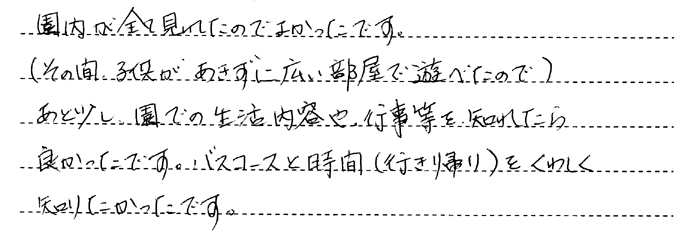 園内が全て見れたのでよかったです。
(その間、子供があきずに広い部屋で遊べたので)
あと少し、園での生活内容や、行事等を知れたら
良かったです。バスコースと時間(行き帰り)をくわしく
知りたかったです。